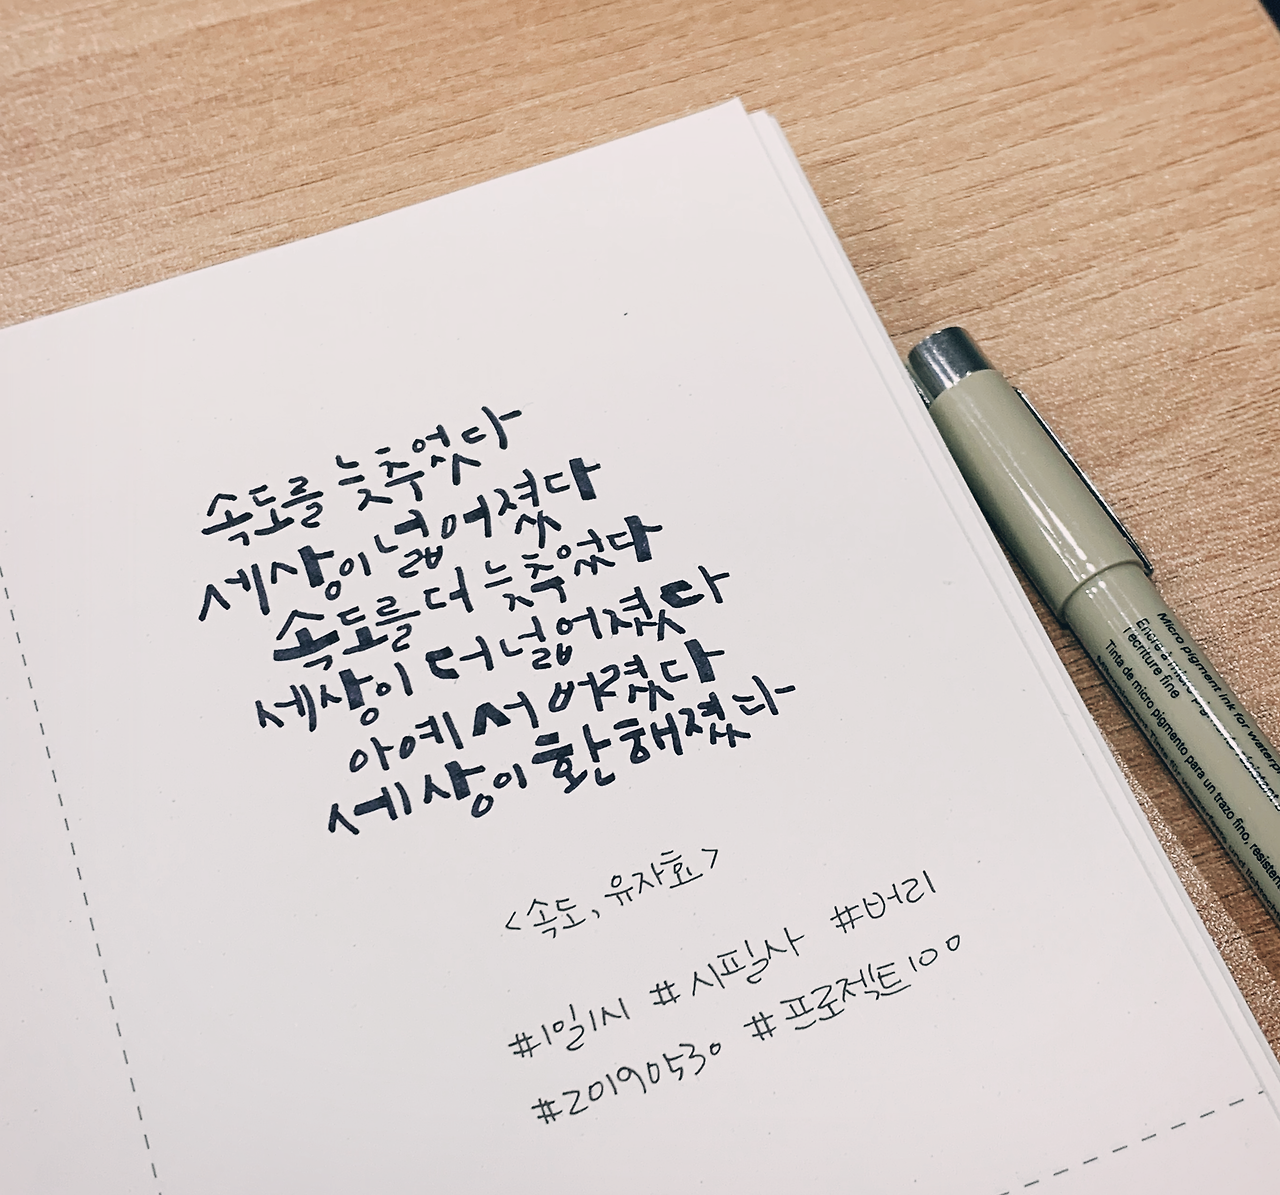 속도를 늦추었다
세상이 넓어졌다
속도를 더 늦추었다
세상이 더 넓어졌다
아예 서 버렸다
세상이 환해졌다
<속도, 유자효>
#1일1시 #시필사 #버리
#20190530 #프로젝트100
Micro pigment ink for
Encre à micro
l'écriture fine
Tinta de micro pigmento para un trazo fino,